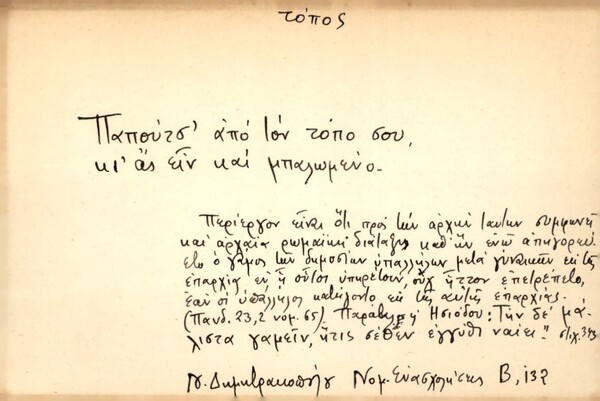 τόπος
Παπούτσ' ἀπό τον τόπο σου,
κι' ἄς εἶν καί μπαλωμένο.
Περίεργον εἶναι ὅτι πρός τήν ἀρχήν ταύτην συμφωνεῖ
καί ἀρχαία ρωμαϊκή διάταξις καθ' ἥν ἐνῶ ἀπηγορεύ
ετο ὁ γάμος τῶν δημοσίων ὑπαλλήλων μετά γυναικῶν ἐκ τῆς
ἐπαρχίας ἐν ᾗ οὗτοι ὑπηρέτουν, οὐχ ἧττον ἐπετρέπετο,
ἐάν οἱ ὑπάλληλοι κατήγοντο ἐκ τῆς αὐτῆς ἐπαρχίας.
(Πανδ. 23,2 νόμ. 65). Παράβαλε Ἡσιόδου: Τήν δέ μά
λιστα γαμεῖν, ἥτις σέθεν ἐγγύθι ναίει" στιχ. 343
Ν. Δημητρακοπούλου Νομ. Ἐνασχολήσεις Β, 132